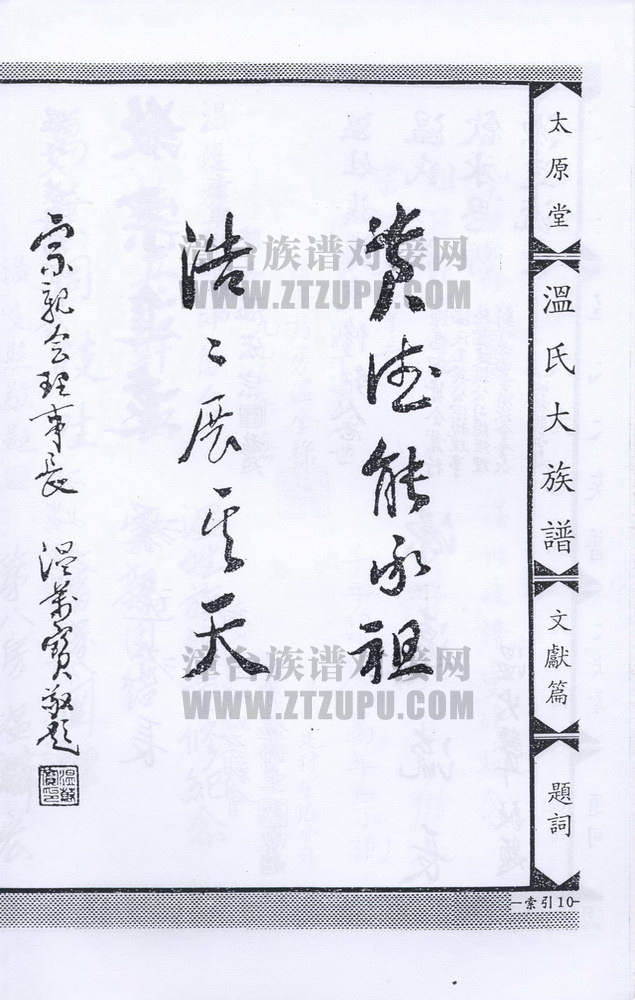 太原堂
溫氏大族譜
文獻篇
題詞
—索引10—
德能承祖
浩〻展天
宗親会理事長 溫萬寶敬題
漳台族谱对接网
WWW.ZTZUPU.COM
漳台族谱对接网
WWW.ZTZUPU.COM